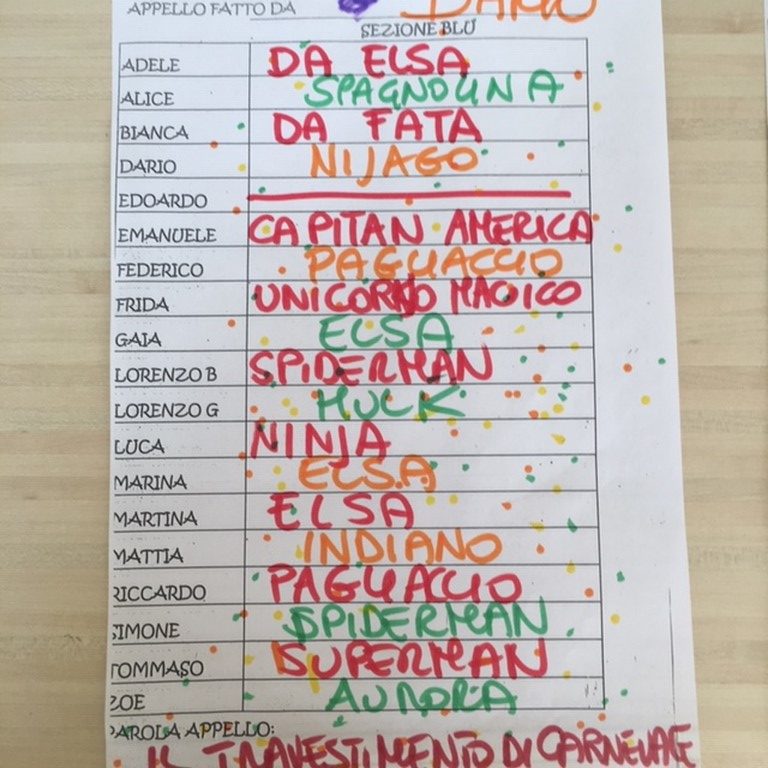 APPELLO FATTO DA DARIO
SEZIONE BLU
ADELE DA ELSA
ALICE SPAGNOLINA
BIANCA DA FATA
DARIO NIJAGO
EDOARDO
EMANUELE CAPITAN AMERICA
FEDERICO PAGLIACCIO
FRIDA UNICORNO MAGICO
GAIA ELSA
LORENZO B SPIDERMAN
LORENZO G HULK
LUCA NINJA
MARINA ELSA
MARTINA ELSA
MATTIA INDIANO
RICCARDO PAGLIACCIO
SIMONE SPIDERMAN
TOMMASO SUPERMAN
ZOE AURORA
PAROLA APPELLO:
IL TRAVESTIMENTO DI CARNEVALE